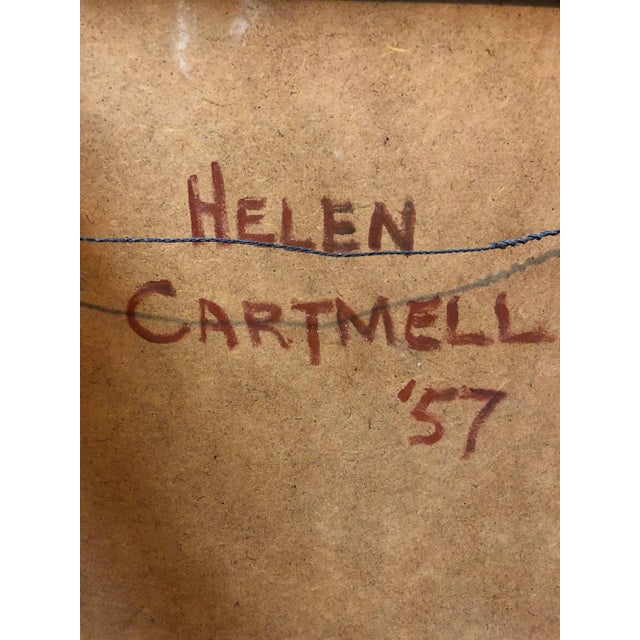 HELEN
CARTMELL
'57